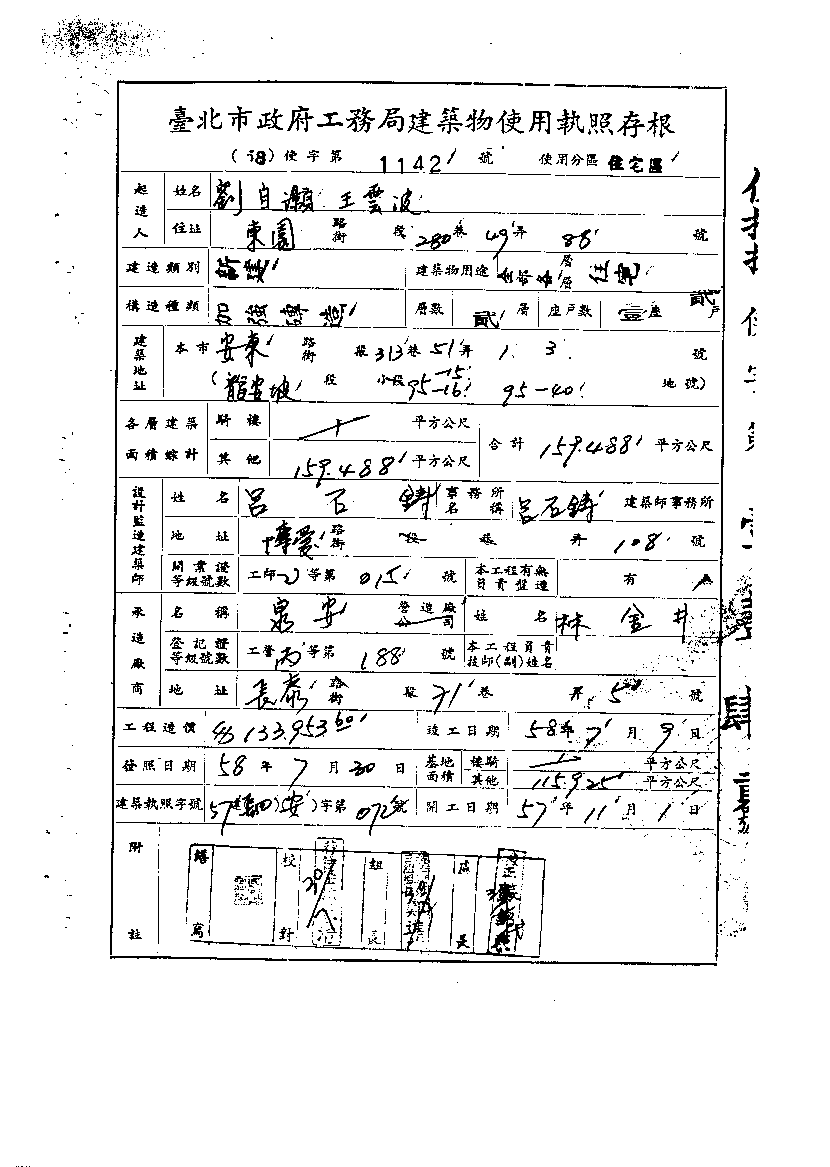 臺北市政府工務局建築物使用執照存根
(58)使字第 1142 號 使用分區 住宅區
起造人 姓名 劉自灝 王雲波
住址 東園 路街 段 280 巷 49 弄 88 號
建造類別 新建 建築物用途 層 層 住宅
構造種類 加強磚造 層數 貳 層 座戶數 壹 座 貳 戶
建築地址 本市 安東 路街 段 313 巷 51 弄 1. 3. 號
( 龍安坡 段 小段 95-15 95-16 95-40 地號)
各層建築面積綜計 騎樓 平方公尺 合計 159.488 平方公尺
其他 159.488 平方公尺
設計監造建築師 姓名 呂石鑄 事務所名稱 呂石鑄 建築師事務所
地址 博愛 路街 段 巷 弄 108 號
開業證等級號數 工師 乙 等第 015 號 本工程有無負責監造 有
承造廠商 名稱 泉安 營造廠公司 姓名 林金井
登記證等級號數 工營 丙 等第 188 號 本工程負責技師(副)姓名
地址 長泰 路街 段 71 巷 弄 5 號
工程造價 133,953.60 竣工日期 58 年 7 月 9 日
發照日期 58 年 7 月 30 日 基地面積 騎樓 平方公尺
其他 115.925 平方公尺
建築執照字號 57 (安)字第 072 號 開工日期 57 年 11 月 1 日
附註 繕寫 校對 組長 區長